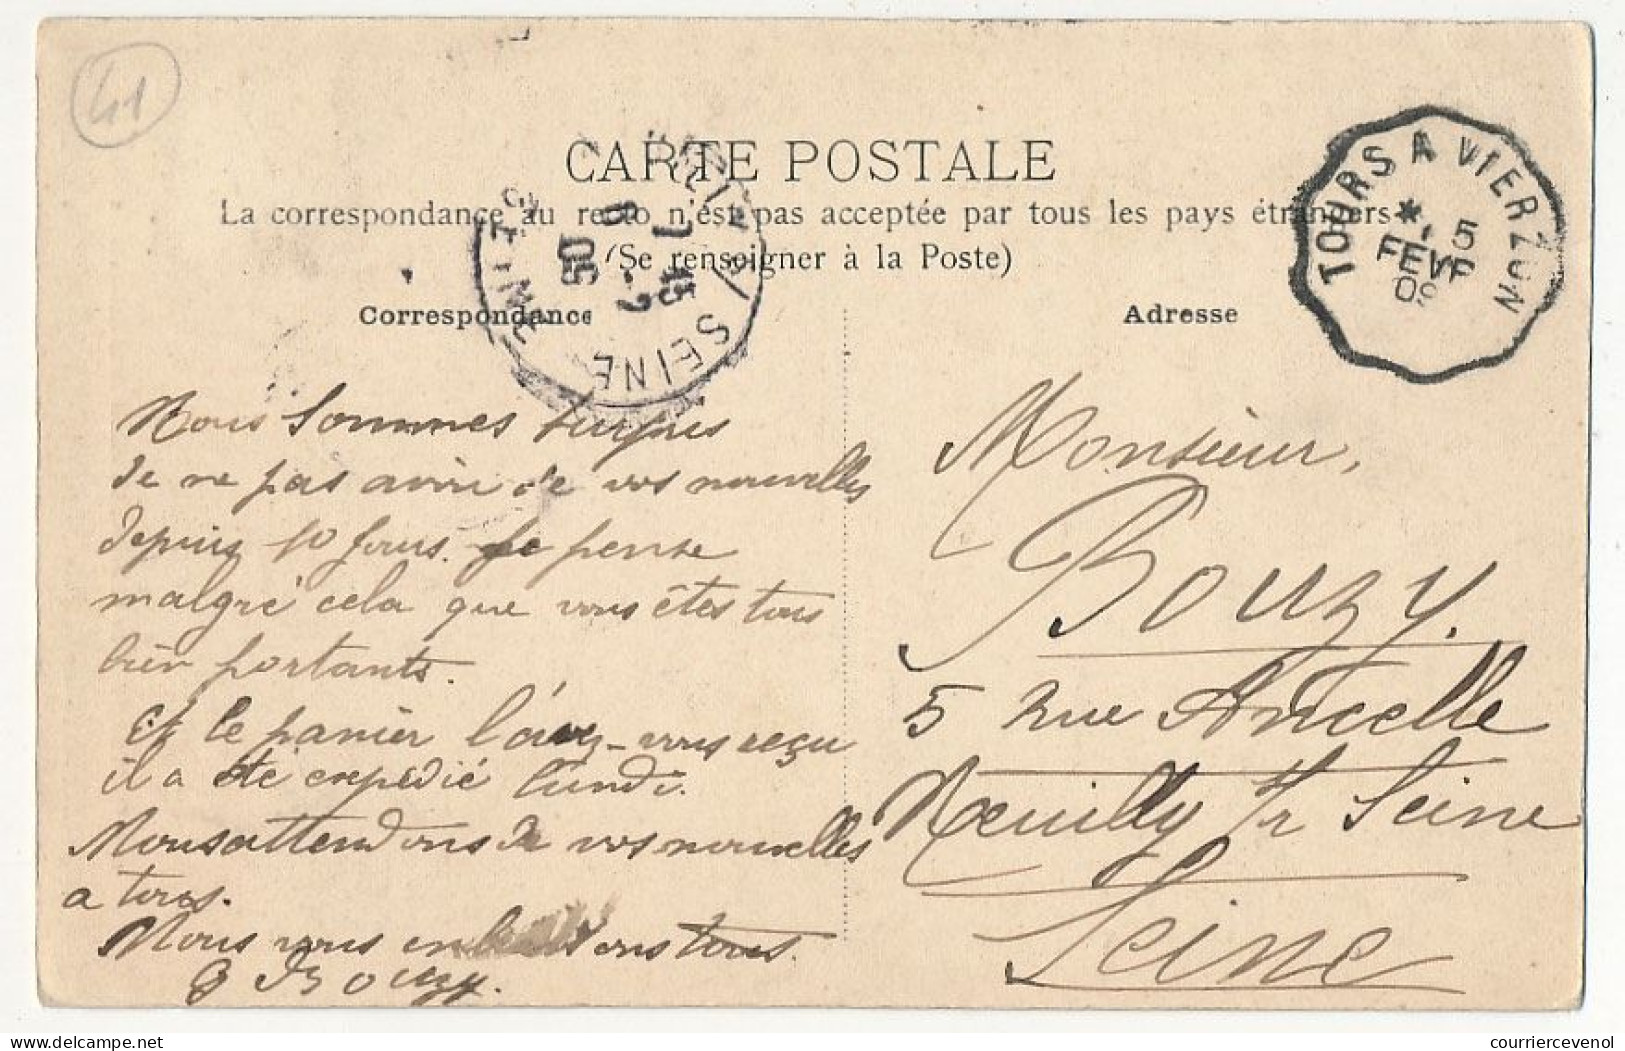 41
CARTE POSTALE
La correspondance au recto n'est pas acceptée par tous les pays étrangers
(Se renseigner à la Poste)
Correspondance
Adresse
TOURS A VIERZON
5
FEVR
SEINE
7 45
6 -2
05
Nous sommes surpris
de ne pas avoir de vos nouvelles
depuis 10 jours. Je pense
malgré cela que vous êtes tous
bien portants.
Et le panier l'avez-vous reçu
il a été expédié lundi.
Nous attendons de vos nouvelles
a tous.
Nous vous embrassons tous.
Bouzy.
Monsieur,
Bouzy.
5 Rue Ancelle
Neuilly s/r Seine
Seine
courriercevenol.com